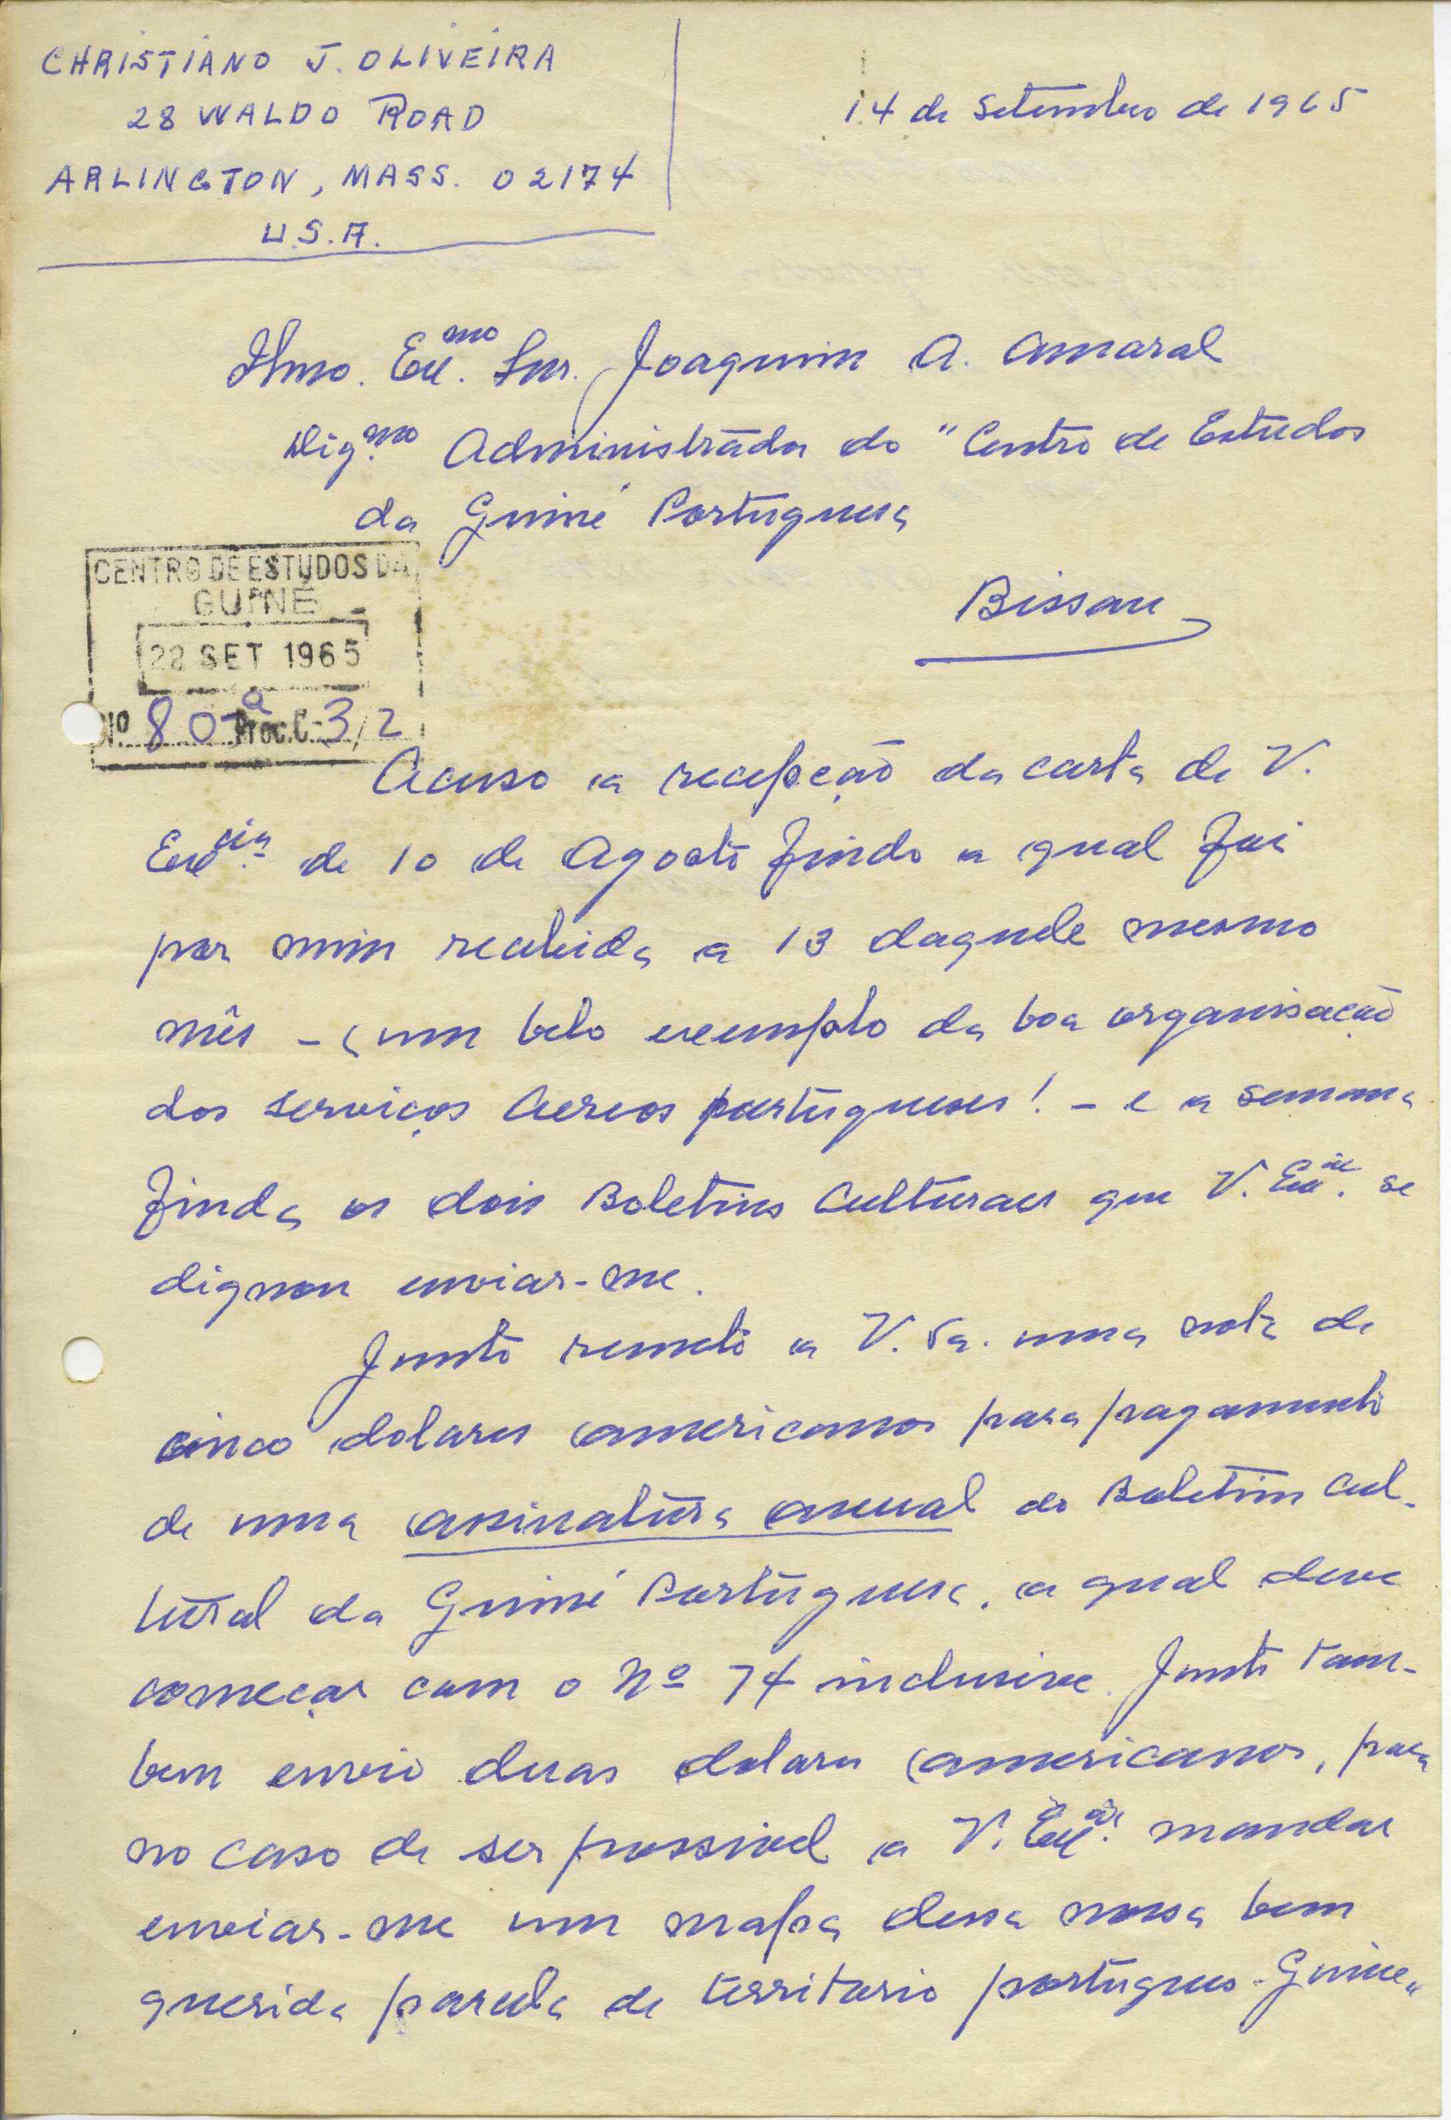 CHRISTIANO J. OLIVEIRA
28 WALDO ROAD
ARLINGTON, MASS. 02174
U.S.A.
14 de Setembro de 1965
Ilmo. Exmo. Snr. Joaquim A. Amaral
Dig.mo Administrador do "Centro de Estudos
da Guiné Portuguesa
Bissau
CENTRO DE ESTUDOS DA
GUINÉ
22 SET 1965
Nº 80-a Proc. C-3/2
Acuso a recepção da carta de V.
Excia. de 10 de Agosto findo a qual foi
por mim recebida a 13 daquele mesmo
mês - (um belo exemplo da boa organisação
dos serviços Aereos portugueses! - e a semana
finda os dois Boletins Culturaes que V. Excia. se
dignou enviar-me.
Junto remeto a V. Sa. uma nota de
cinco dolares americanos para pagamento
de uma assinatura anual do Boletim Cul-
tural da Guiné Portuguesa, a qual deve
começar com o Nº 74 inclusive. Junto tam-
bem envio duas dolares americanos, para
no caso de ser possivel a V. Excia. mandar
enviar-me um mapa dessa nossa bem
querida parcela de territorio portugues - Guiné"